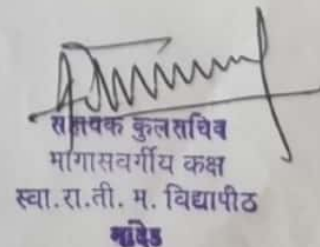 सहायक कुलसचिव
मागासवर्गीय कक्ष
स्वा.रा.ती. म. विद्यापीठ
नांदेड